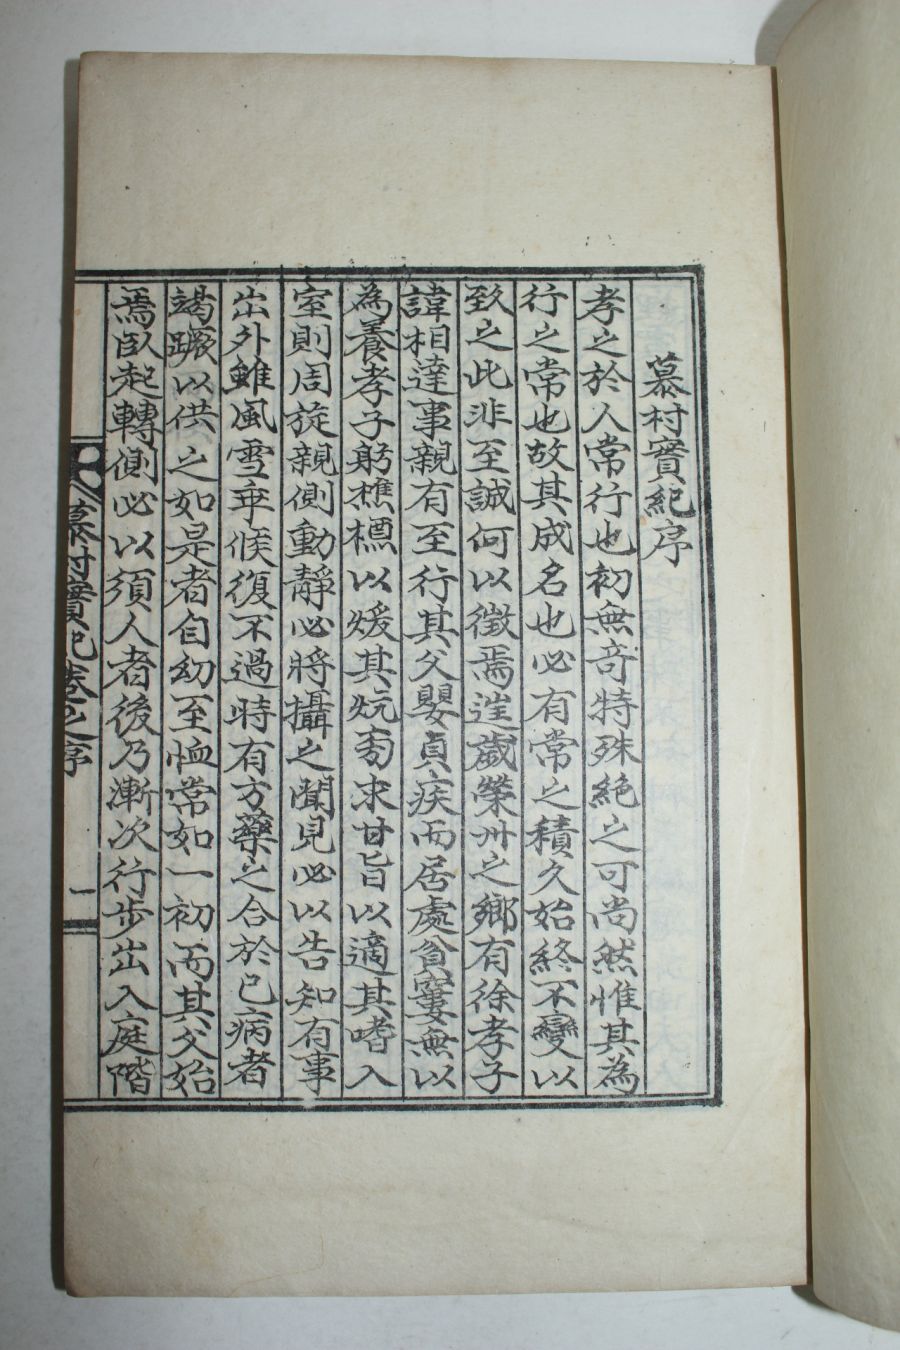 慕村實紀序
孝之於人常行也初無奇特殊絶之可尚然惟其為
行之常也故其成名也必有常之積久始終不變以
致之此非至誠何以徵焉迋歲榮州之鄉有徐孝子
諱相達事親有至行其父嬰貞疾而居處貧窶無以
為養孝子躬樵檟以煖其炕匃求甘旨以適其嗜入
室則周旋親側動靜必將攝之聞見必以告知有事
出外雖風雪乖候復不過時有方藥之合於已病者
竭蹶以供之如是者自幼至恤常如一初而其父始
焉臥起轉側必以須人者後乃漸次行步出入庭階
慕村實紀卷之序
一